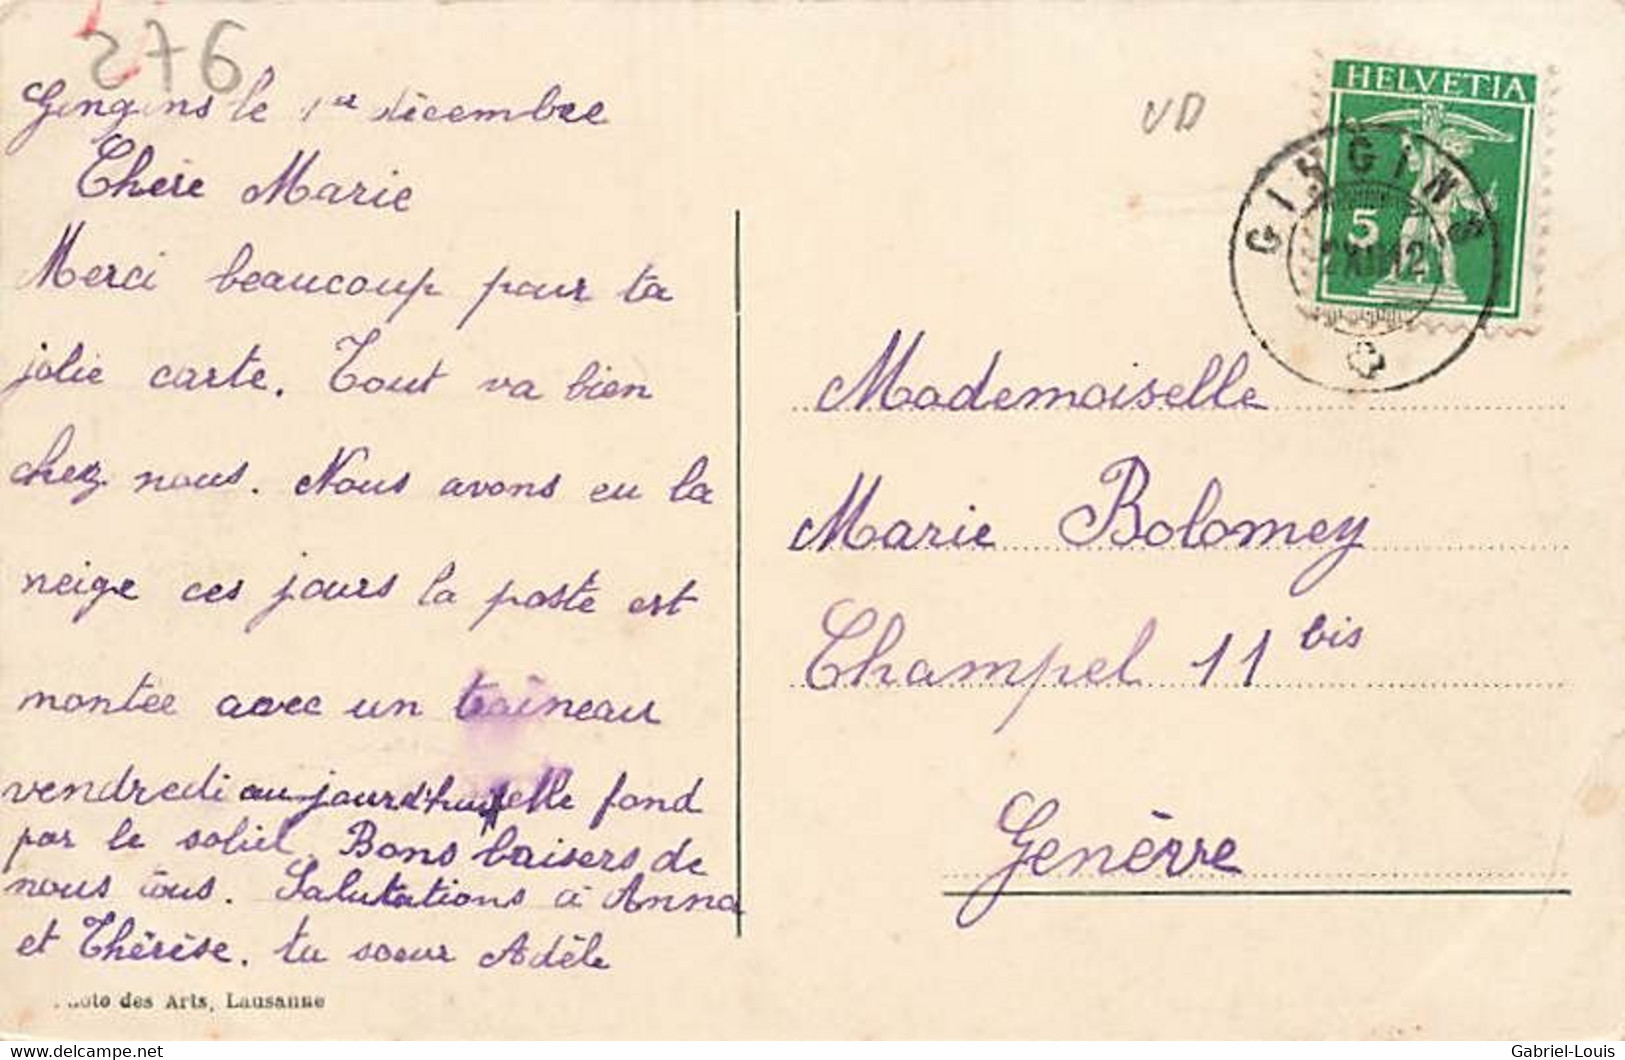 276
Gingins le 1er décembre
Chère Marie
Merci beaucoup pour ta
jolie carte. Tout va bien
chez nous. Nous avons eu la
neige ces jours la poste est
montée avec un traîneau
vendredi aujourd'hui elle fond
par le soliel. Bons baisers de
nous tous. Salutations à Anna
et Thérèse. ta soeur Adèle
Photo des Arts, Lausanne
VD
HELVETIA
5
GINGINS
2 XII 12
Mademoiselle
Marie Bolomey
Champel 11 bis
Genèvve
www.delcampe.net
Gabriel-Louis